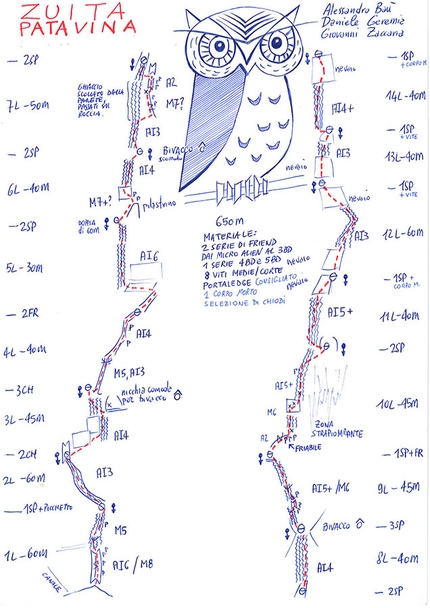 ZUITA
PATAVINA
Alessandro Baù
Daniele Geremia
Giovanni Zaccaria
— 2SP
GHIACCIO
SCOLLATO DALLA
PARETE,
PASSATI SU
ROCCIA.
A2
M7?
7L - 50m
AI3
— 2SP
BIVACCO
scomodo
AI4
6L - 40m
M7+?
pilastrino
— 2SP
DOPPIA
DI 60m
AI6
5L - 30m
— 2FR
AI4
4L - 40m
M5, AI3
— 3CH
nicchia comoda
per bivacco
3L - 45m
AI4
— 2CH
AI3
2L - 60m
— 1SP + PICCHETTO
M5
1L - 60m
AI6 / M8
CANALE
650m
MATERIALE:
2 SERIE DI FRIEND
DAI MICRO ALIEN AL 3BD
1 SERIE 4BD E 5BD
8 VITI MEDIE/CORTE
PORTALEDGE CONSIGLIATO
1 CORPO MORTO
SELEZIONE DI CHIODI
— 1SP
+ CORPO M.
nevaio
14L - 40m
AI4+
— 1SP
+ VITE
AI3
13L - 40m
nevaio
— 1SP
+ VITE
nevaio
AI3
12L - 60m
nevaio
— 1SP +
CORPO M.
nevaio
AI5+
11L - 40m
— 2SP
AI5+
10L - 45m
M6
ZONA
STRAPIOMBANTE
A2
FRIABILE
— 1SP + FR
AI5+ / M6
9L - 45m
BIVACCO
— 3SP
8L - 40m
AI4
— 2SP